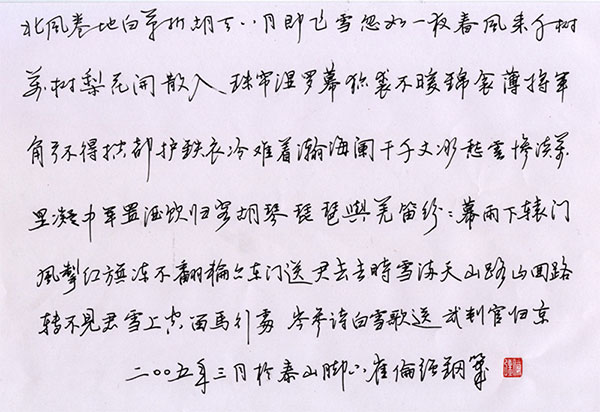 北風卷地白草折胡天八月即飞雪忽如一夜春風来千树
万树梨花开散入珠帘湿罗幕狐裘不暖锦衾薄将军
角弓不得控都护铁衣冷难着瀚海阑干千丈冰愁雲惨淡万
里凝中军置酒饮归客胡琴琵琶與羌笛纷纷幕雨下辕门
風掣红旗冻不翻轮台东门送君去去時雪满天山路山回路
转不见君雪上空留馬行處 岑参诗白雪歌送武判官归京
二〇〇五年三月於泰山脚下崔倫强钢筆